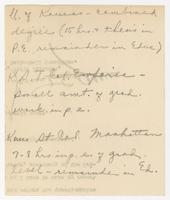 U. of Kansas - combined
degree (15 hrs. + thesis in
P.E. remainder in Educ)
K.S.T.C. Emporia -
small amt. of grad.
work in p.e.
Kans St. Col. Manhattan
7-8 hrs in p.e. of grad.
level - remainder in Ed.